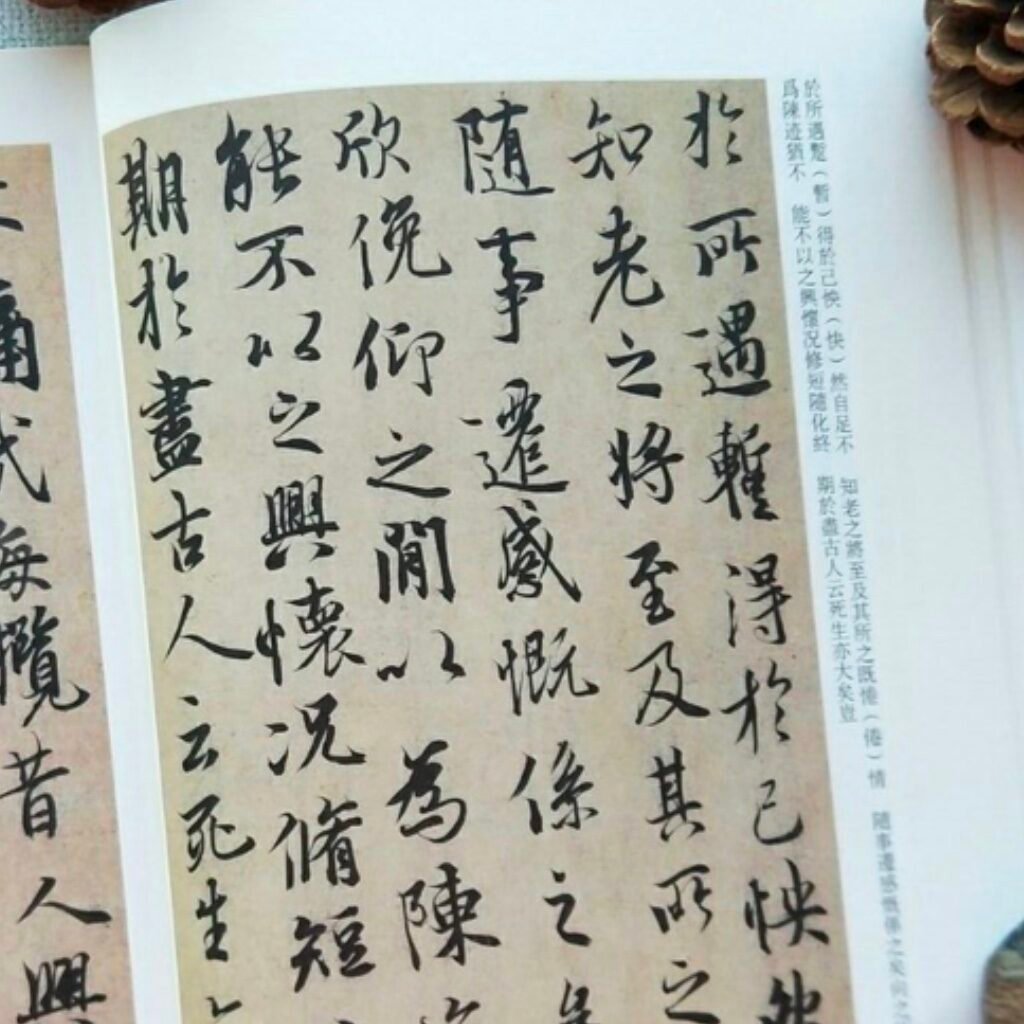 於所遇蹔（暫）得於己怏（快）然自足不　知老之將至及其所之既惓（倦）情　隨事遷感慨係之矣向之
爲陳迹猶不　能不以之興懷况修短隨化終　期於盡古人云死生亦大矣豈
於所遇蹔得於己怏然
知老之將至及其所之
隨事遷感慨係之
欣俛仰之閒以為陳
能不以之興懷况脩短
期於盡古人云死生
痛哉每攬昔人興